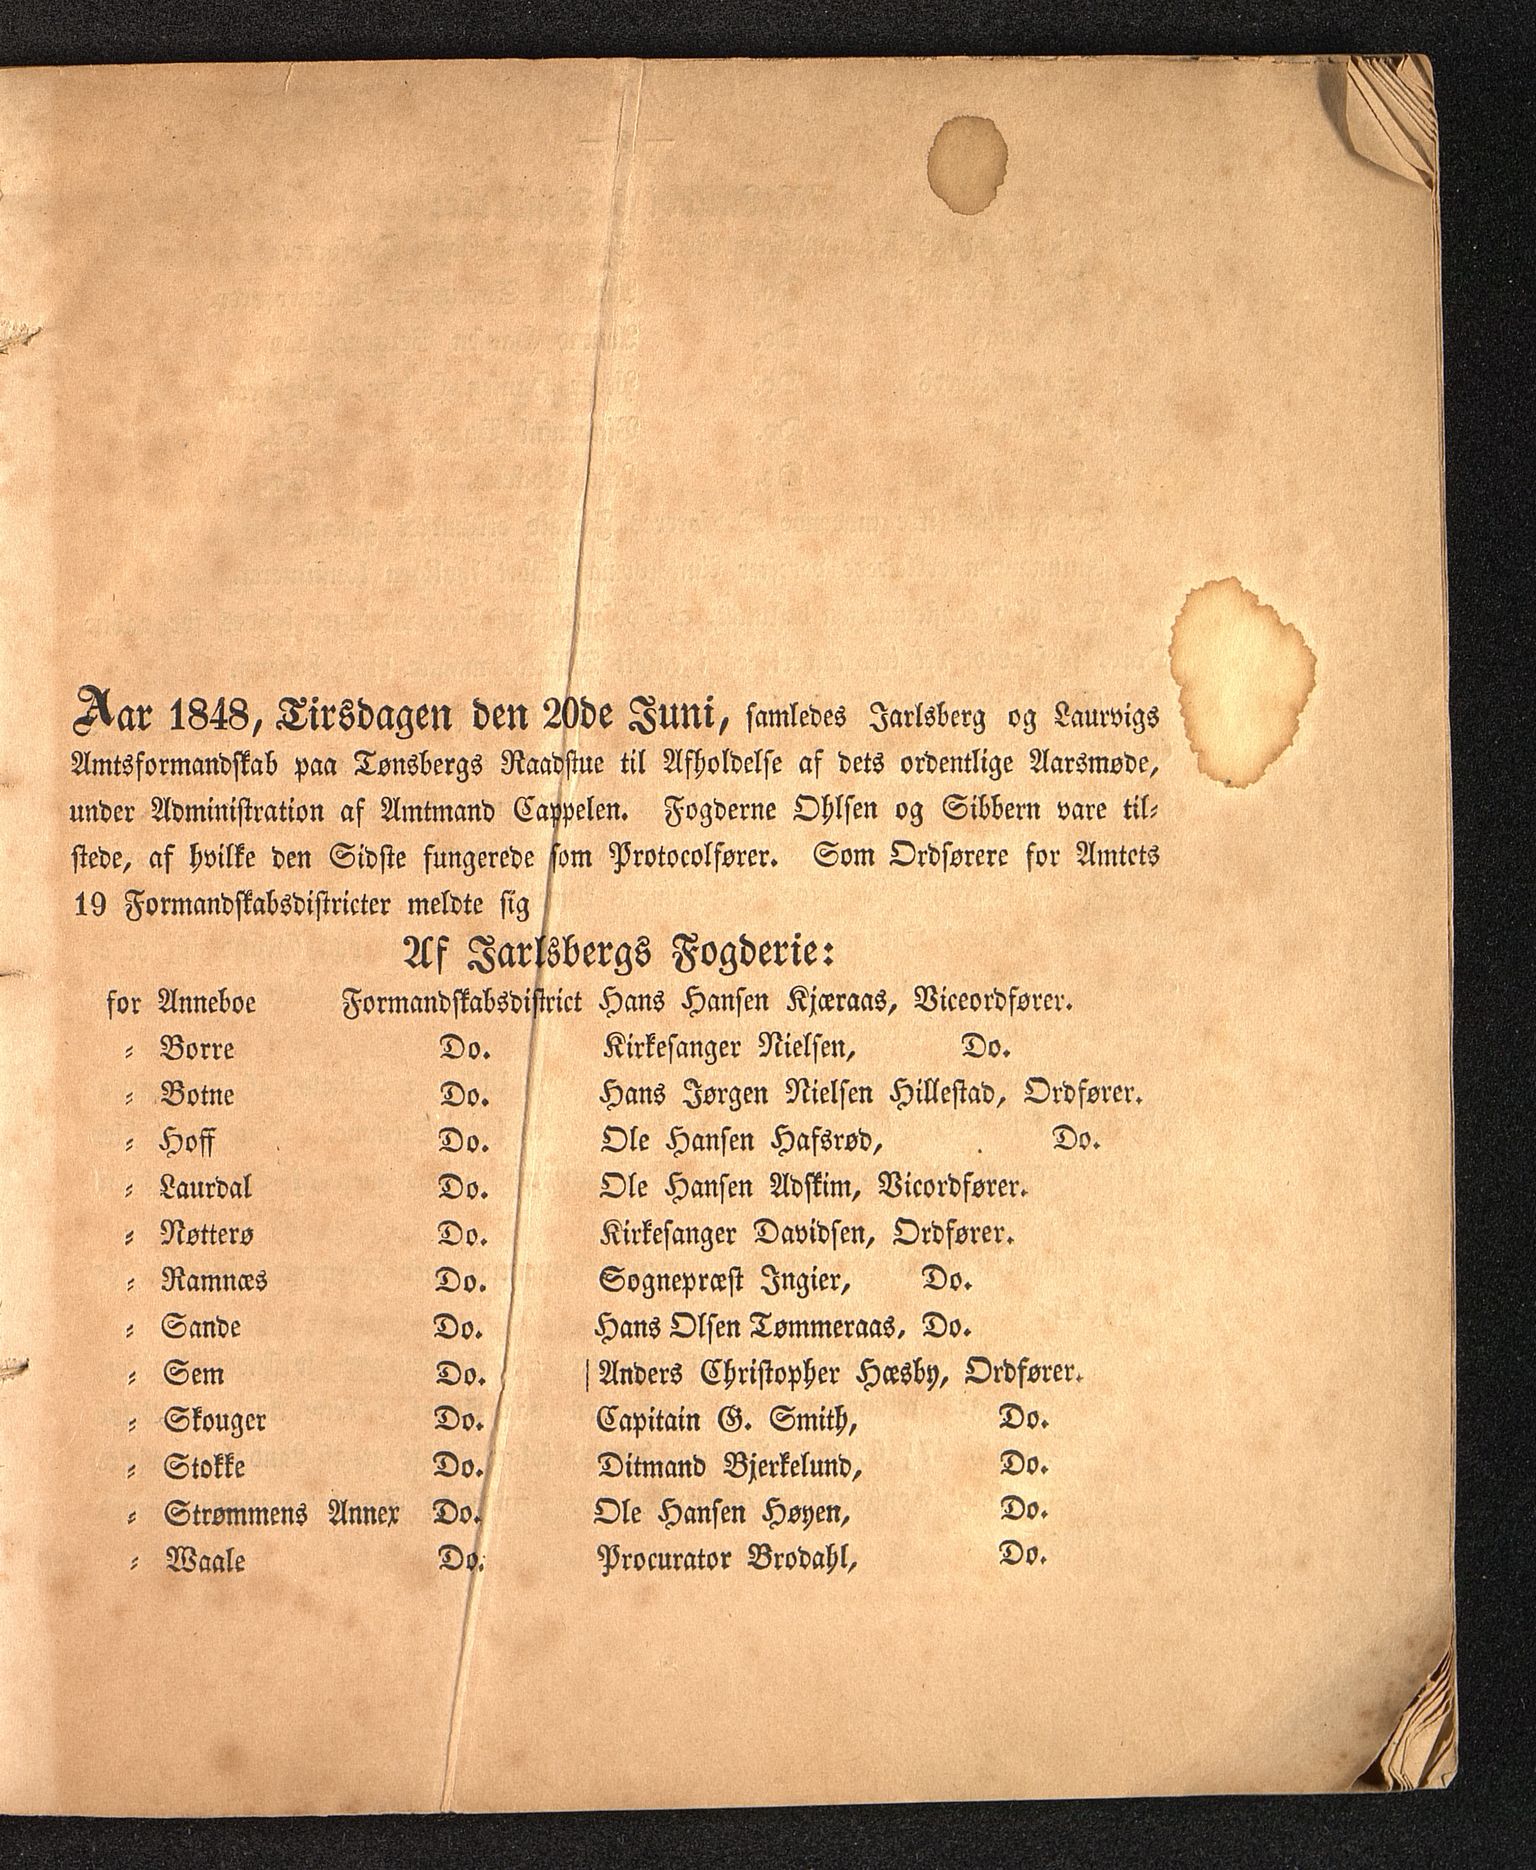 Aar 1848, Tirsdagen den 20de Juni, samledes Jarlsberg og Laurvigs
Amtsformandskab paa Tønsbergs Raadstue til Afholdelse af dets ordentlige Aarsmøde,
under Administration af Amtmand Cappelen. Fogderne Ohlsen og Sibbern vare til-
stede, af hvilke den Sidste fungerede som Protocolfører. Som Ordførere for Amtets
19 Formandskabsdistricter meldte sig
Af Jarlsbergs Fogderie:
for Anneboe Formandskabsdistrict Hans Hansen Kjæraas, Viceordfører.
- Borre Do. Kirkesanger Nielsen, Do.
- Botne Do. Hans Jørgen Nielsen Hillestad, Ordfører.
- Hoff Do. Ole Hansen Hafsrød, Do.
- Laurdal Do. Ole Hansen Adskim, Vicordfører.
- Nøtterø Do. Kirkesanger Davidsen, Ordfører.
- Ramnæs Do. Sognepræst Ingier, Do.
- Sande Do. Hans Olsen Tømmeraas, Do.
- Sem Do. Anders Christopher Hæsby, Ordfører.
- Skouger Do. Capitain G. Smith, Do.
- Stokke Do. Ditmand Bjerkelund, Do.
- Strømmens Annex Do. Ole Hansen Høyen, Do.
- Waale Do. Procurator Brodahl, Do.